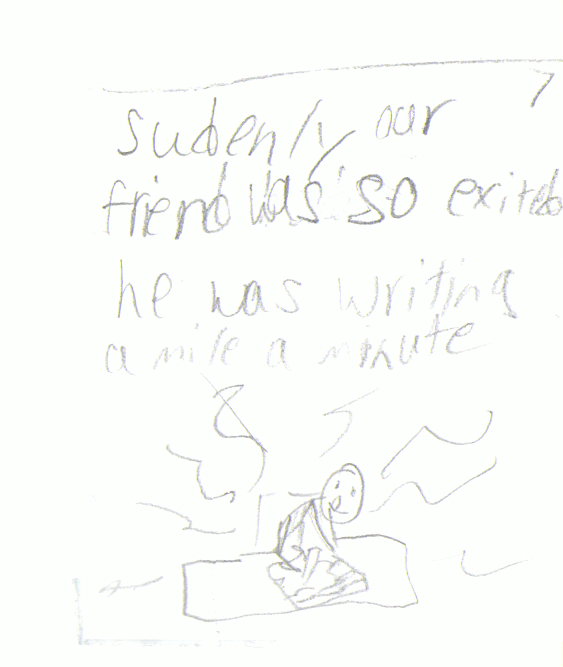 7
sudenly our
friend was so exited
he was writing
a mile a minute